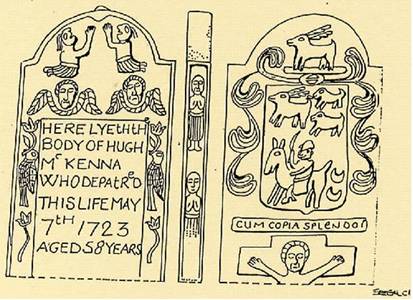 HERE LYETH THe
BODY OF HUGH
Mc KENNA
WHO DEPATRD
THIS LIFE MAY
7TH 1723
AGED 58 YEARS
CUM COPIA SPLENDOI